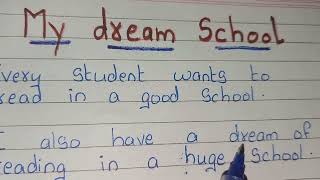 My dream School
Every student wants to
read in a good School.
I also have a dream of
reading in a huge School.